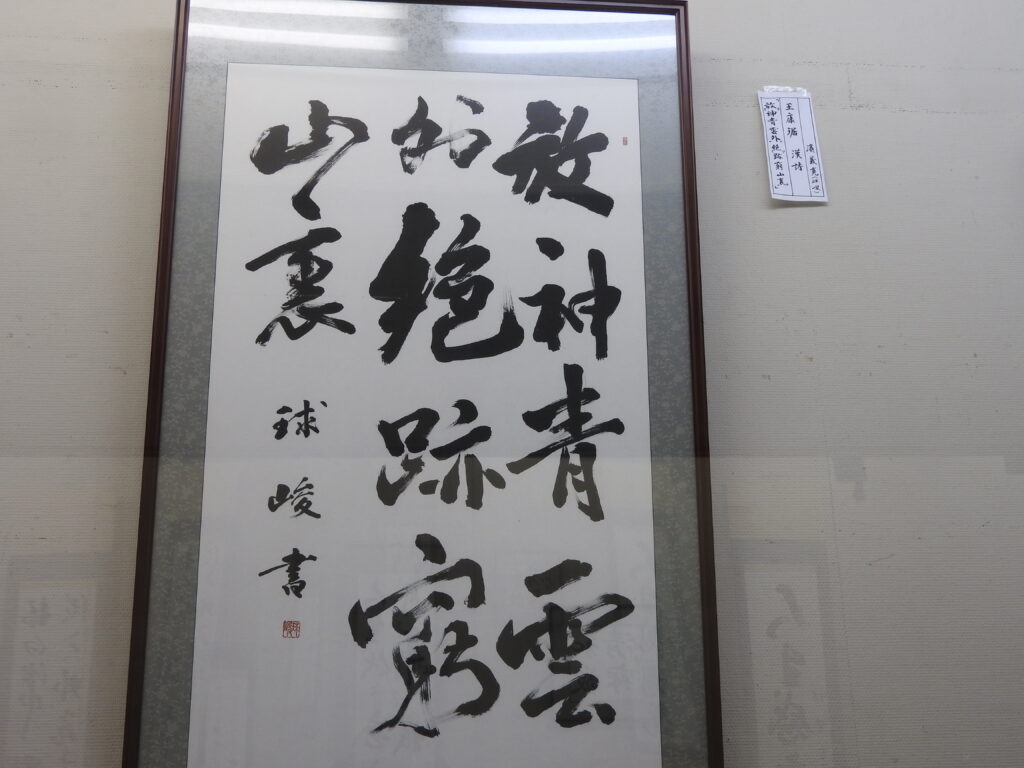 放神青雲
外絶跡窮
山裏
球峻書
王康琚 漢詩
放神青雲外絶跡窮山裏